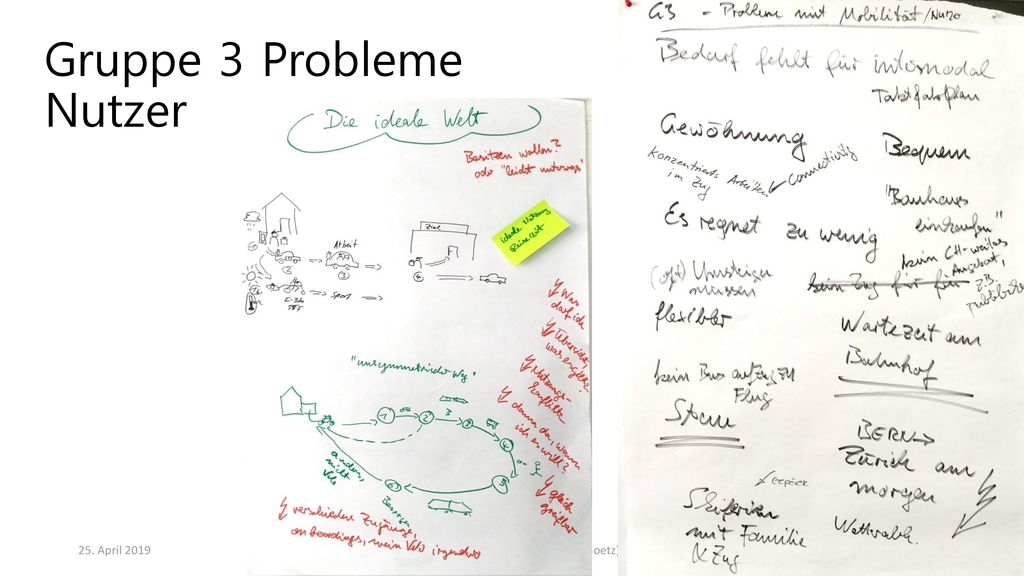 Gruppe 3 Probleme
Nutzer
Die ideale Welt
Besitzen wollen?
oder "leicht unterwegs"
ideale Nutzung
Reisezeit
Ziel
Arbeit
1
2
3
4
E-Bike
Sport
Was
darf ich
Übersicht,
was es gibt
Nutzungs-
konflikte
dann da, wann
ich es will?
gleich
greifbar
"unsymmetrischer Weg"
1
2
3
3
4
5
anders,
nicht
Velo
verschiedene Zugänge,
onboardings, mein Velo irgendwo
25. April 2019
oetz)
G3 - Probleme mit Mobilität/Nutzer
Bedarf fehlt für intermodal
Taktfahrplan
Gewöhnung
Bequem
konzentriertes Arbeiten
im Zug
Connectivity
"Bauhaus
einkaufen"
Es regnet zu wenig
kein CH-weites
Angebot,
z.B.
(oft) Umsteigen
müssen
kein Zug für für
flexibler
Wartezeit am
Bahnhof
kein Bus auf Zug ZH
Flug
Stau
BERN →
Zürich am
morgen
Gepäck
Skiferien
mit Familie
& Zug